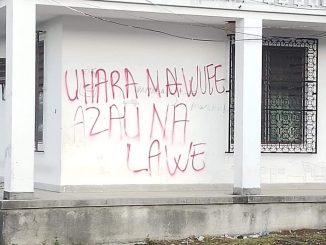 UHARA NA WUFE
AZAU NA
LAWE